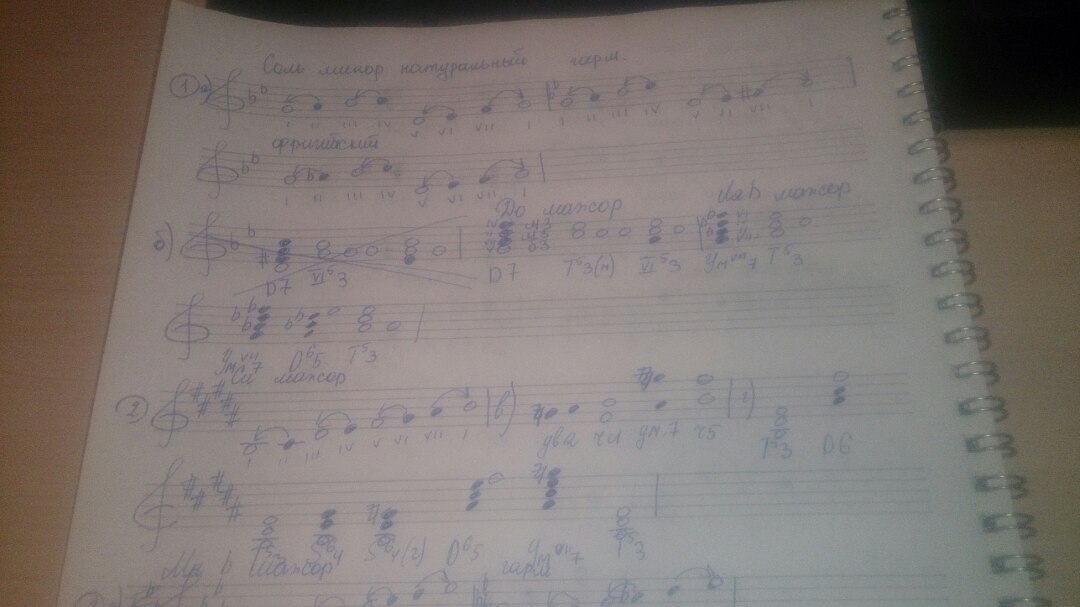 Соль минор натуральный гарм.
① а)
I II III IV V VI VII I I II III IV V VI VII I
фригийский
I II III IV V VI VII I
До мажор мажор
б)
D7 VI⁵3 D7 T⁵3(м) VI⁵3 Ум VII 7 T⁵3
Ум VII 7 D⁶5 T⁵3
Си мажор
② в) г)
I II III IV V VI VII I ув2 ч4 ум.7 ч5 T⁵3 D6
T⁵3 S⁶4 S⁶4(г) D⁶5 Ум VII 7 T⁵3
Ми b мажор гарм